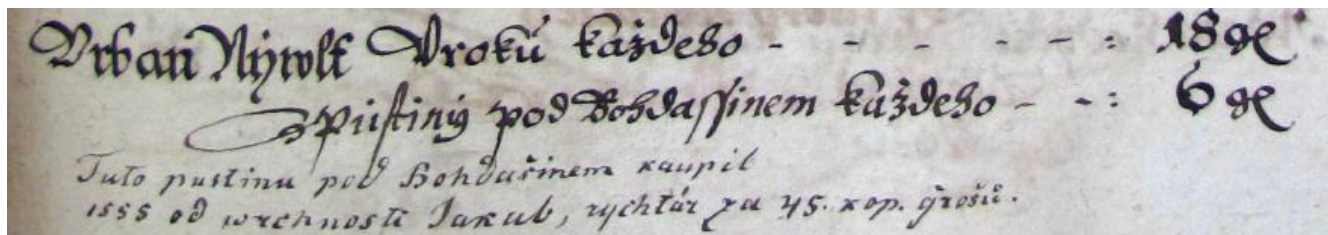 Vrban Nywlt Vroku každeho - - - - - : 18 gℓ
Z Pustiny pod Bohdassinem každeho - - : 6 gℓ
Tuto pustinu pod Bohdašinem kaupil
1555 od wrchnosti Jakub, rychtár za 45. kop. grošů.